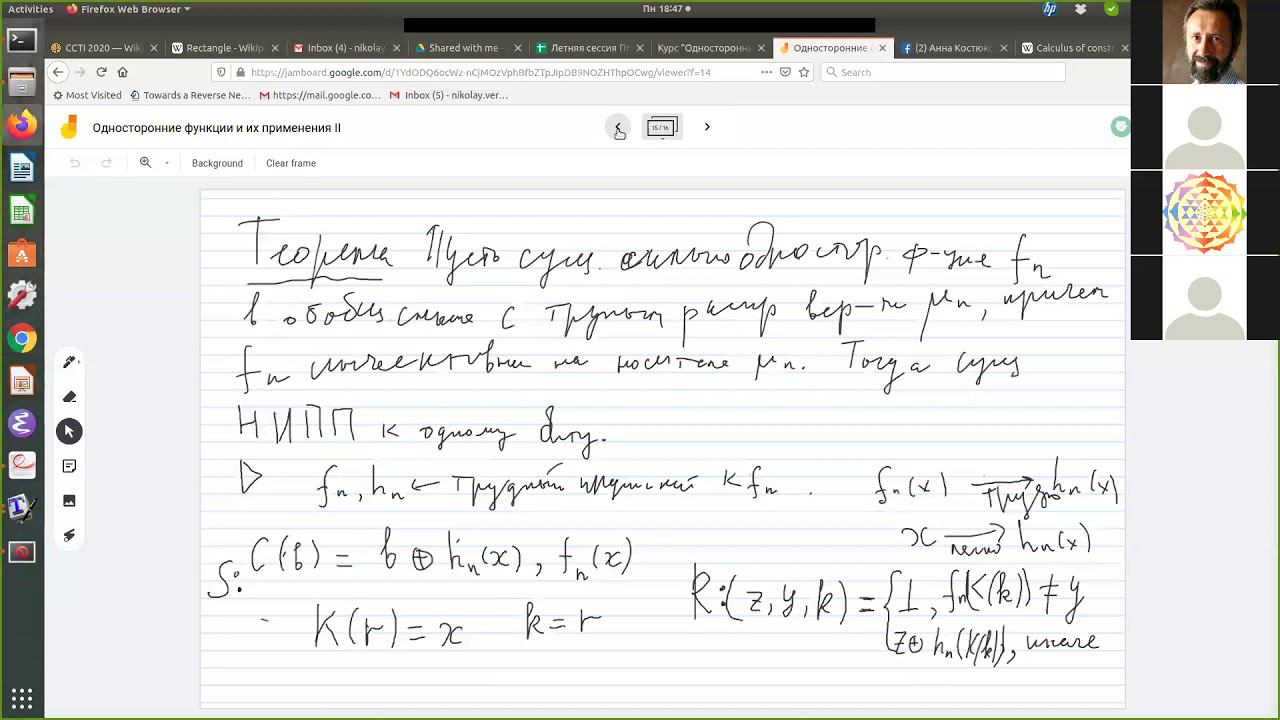 Activities Firefox Web Browser Пн 18:47
CCTI 2020 — Wiki Rectangle - Wikip Inbox (4) - nikolay Shared with me - Летняя сессия ПМ Курс "Односторонн Односторонние ф (2) Анна Костюкс Calculus of constr
https://jamboard.google.com/d/1YdODQAocWz-nCjMOzVphBfbZTpJIpDB9NOZHThpOCwg/viewer?f=14 Search
Most Visited Towards a Reverse Ne... https://mail.google.co... Inbox (5) - nikolay.ver...
Односторонние функции и их применения II
15 / 16
Background Clear frame
Теорема Пусть сущ. сильно одностор. ф-ция fₙ
в обобщ смысле с трудным распр вер-й μₙ, причем
fₙ инъективны на носителе μₙ. Тогда сущ
НИПП к одному биту.
▷ fₙ, hₙ ← трудный к fₙ. fₙ(x) → трудно hₙ(x)
x → легко hₙ(x)
S: C(b) = b ⊕ hₙ(x), fₙ(x)
K(r) = x k = r
R:(z, y, k) = { ⊥, fₙ(K(k)) ≠ y
z⊕ hₙ(K(k)), иначе